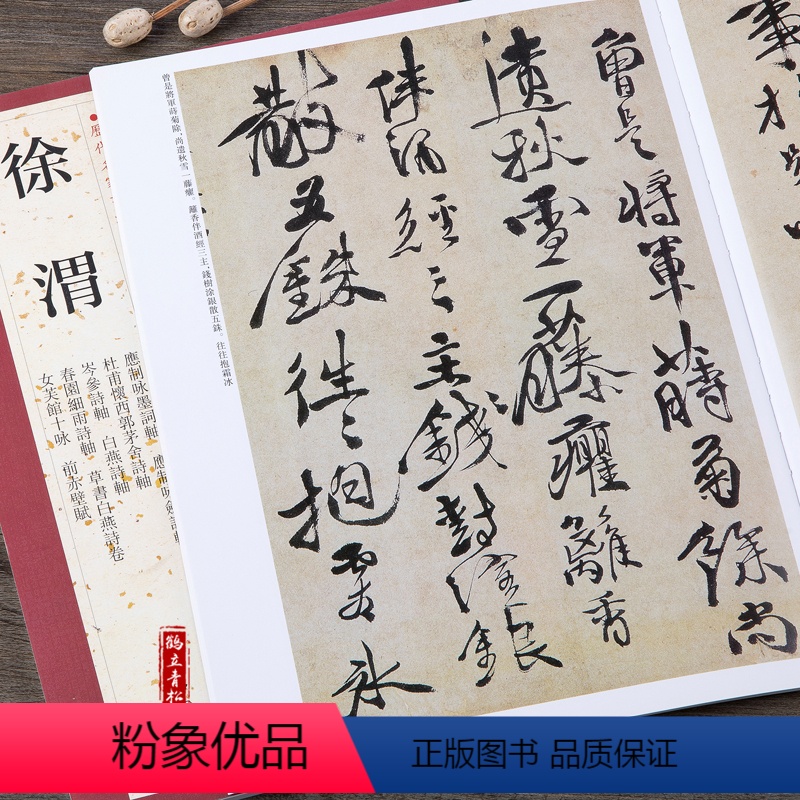 曾是將軍蒔菊餘尚
遺秋雪一藤癯籬香
伴酒經三主錢樹塗銀
散五銖往往抱霜冰
曾是將軍蒔菊餘，尚遺秋雪一藤癯。籬香伴酒經三主，錢樹塗銀散五銖。往往抱霜冰
徐渭
應制咏墨詞軸
杜甫懷西郭茅舍詩軸
岑參詩軸 白燕詩軸 草書白燕詩卷
春園細雨詩軸
女芙館十咏 前赤壁賦
鹤立青松
粉象优品
正版图书 品质保证